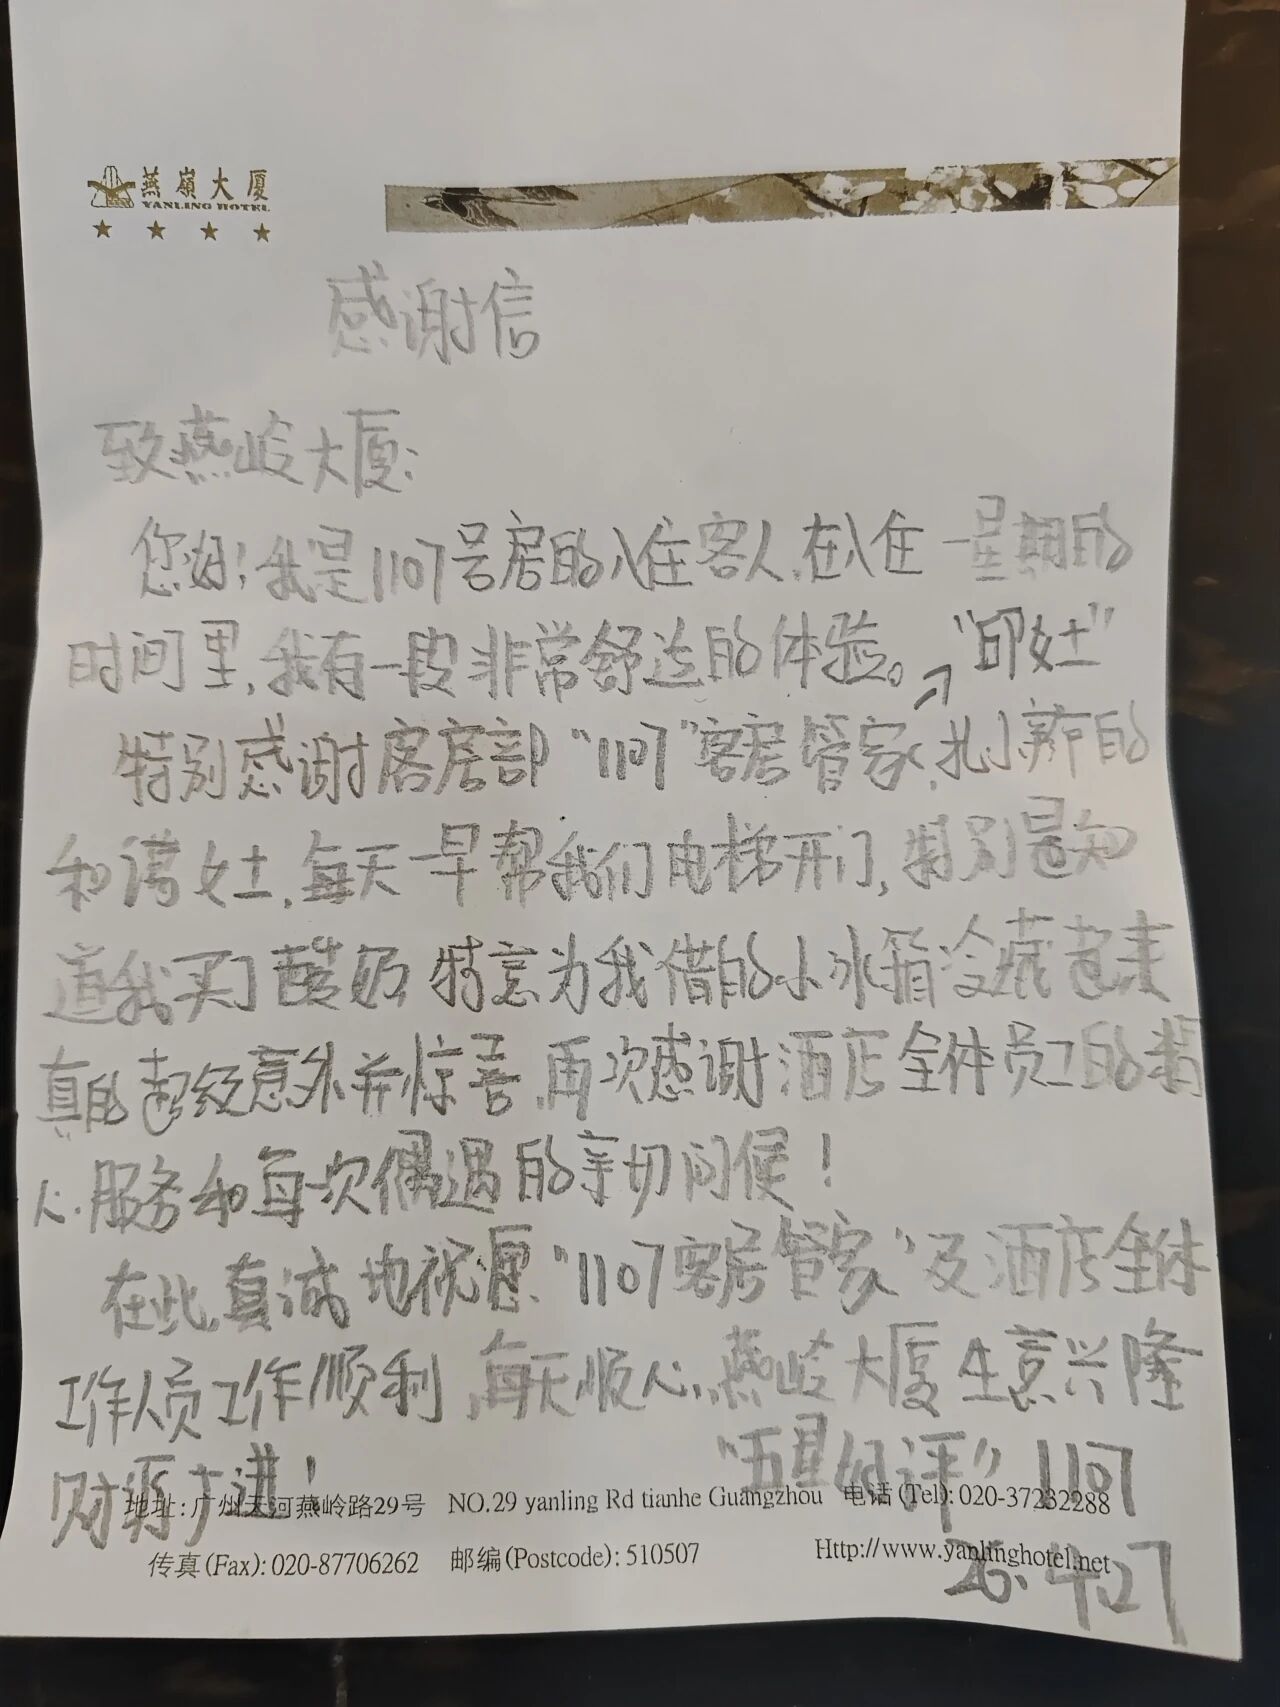 燕嶺大厦
YANLING HOTEL
感谢信
致燕岭大厦:
您好!我是1107号房的入住客人,在入住一星期的
时间里,我有一段非常舒适的体验。"邱女士"
特别感谢客房部"1107"客房管家,扎小辫的
和谐女士,每天一早帮我们电梯开门,特别是知
道我买了酸奶 特意为我借的小冰箱冷藏起来
真的超级意外并惊喜,再次感谢酒店全体员工的精
心服务和每次偶遇的亲切问候!
在此,真诚地祝愿"1107客房管家"及酒店全体
工作人员工作顺利,每天顺心,燕岭大厦生意兴隆
财源广进!
"五星好评" 1107
地址:广州天河燕岭路29号 NO.29 yanling Rd tianhe Guangzhou 电话(Tel):020-37232288
传真(Fax):020-87706262 邮编(Postcode):510507 Http://www.yanlinghotel.net
26.4.27